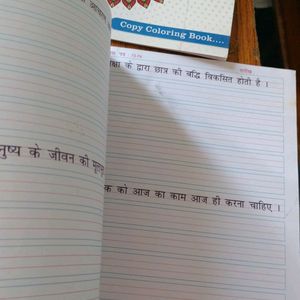 Copy Coloring Book....
क्षा के द्वारा छात्र की बुद्धि विकसित होती है ।
नुष्य के जीवन की
क को आज का काम आज ही करना चाहिए ।